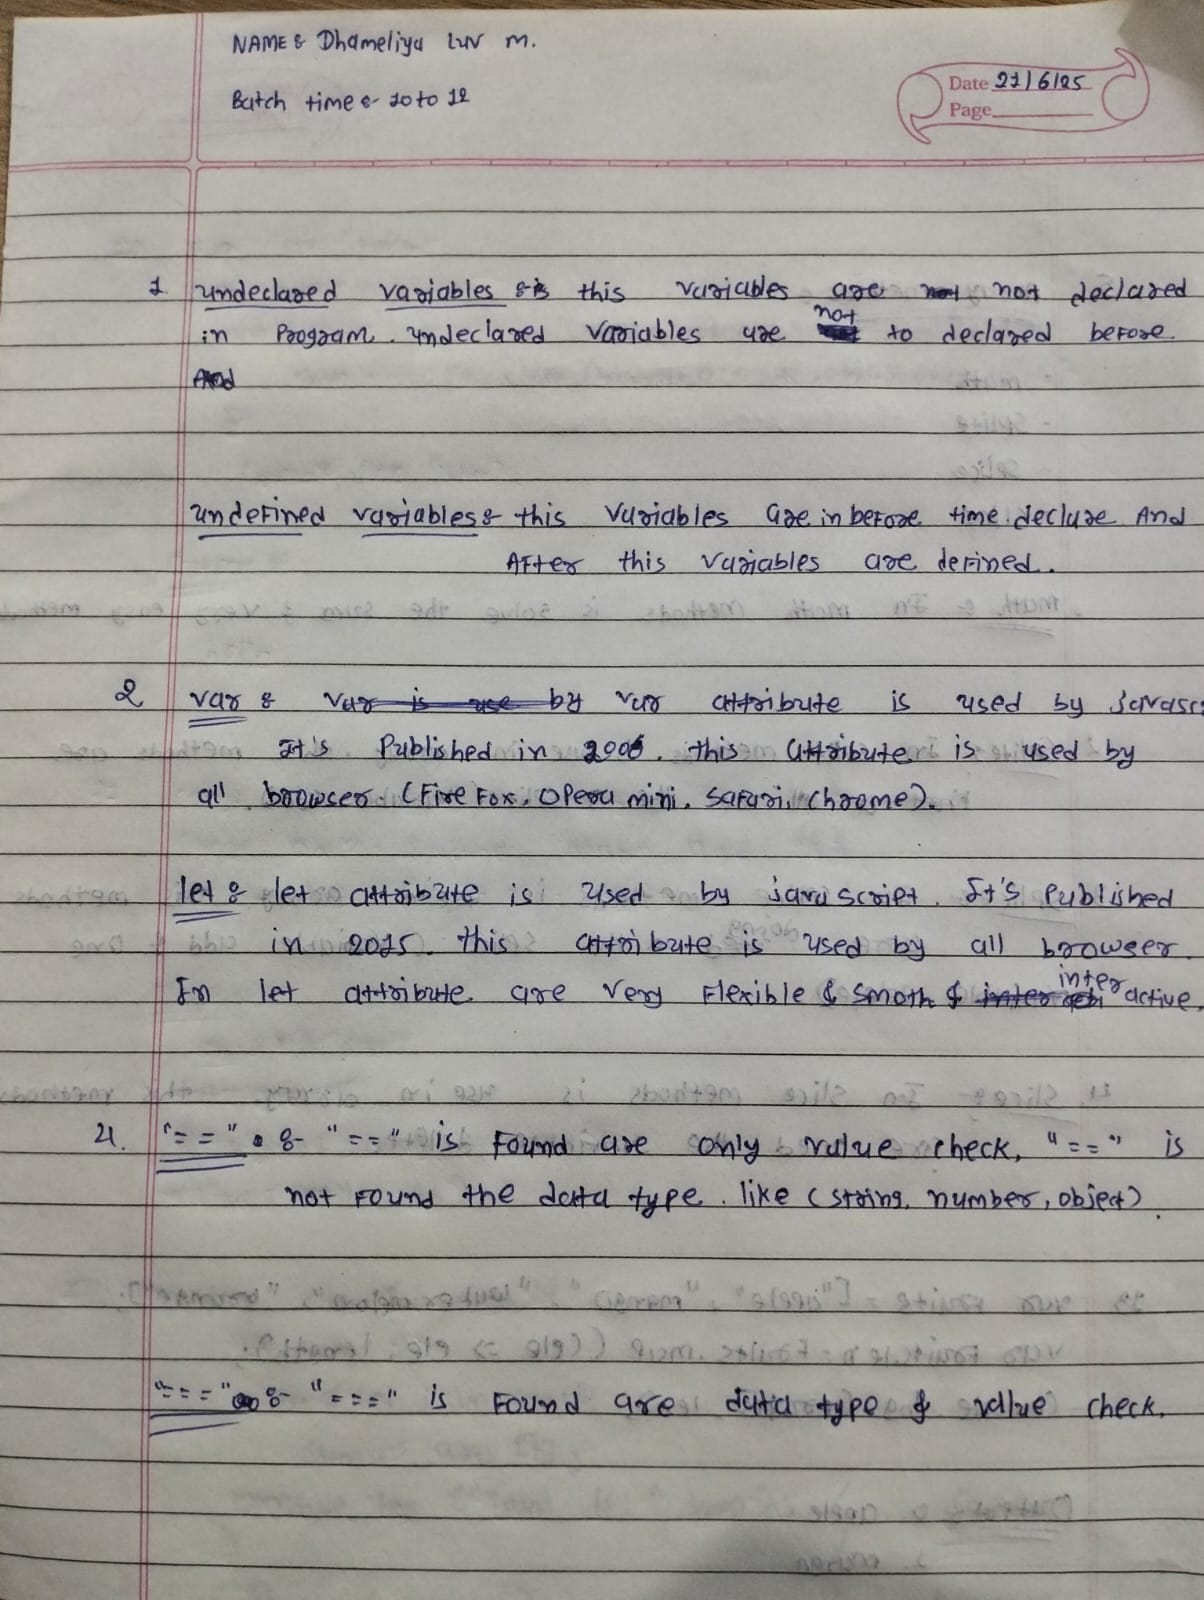 NAME :- Dhameliya Luv M.
Batch time :- 10 to 12
Date 27/6/25
Page
1. undeclared variables :- this variables are not declared
in Program. undeclared variables are not to declared before.
And
undefined variables :- this variables are in before time declare And
After this variables are defined.
2 var :- var is use by var attribute is used by javasc
It's Published in 2006. this attribute is used by
all browser (Fire Fox, Opera mini, Safari, Chrome).
let :- let attribute is used by java script. It's Published
in 2015. this attribute is used by all browser.
In let attribute are very Flexible & smoth & inter active.
4. "==" :- "==" is Found are only value check, "==" is
not Found the data type. like (string, number, object).
"===" :- "===" is Found are data type & value check.